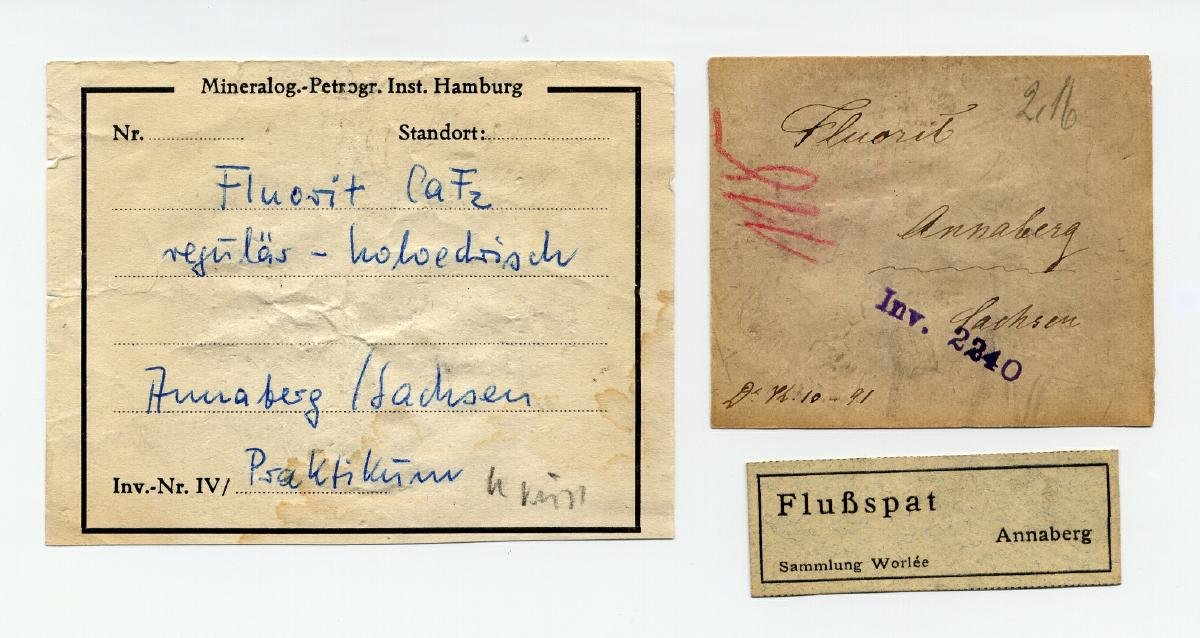 Mineralog.-Petrogr. Inst. Hamburg
Nr. Standort:
Fluorit CaF₂
regulär - holoedrisch
Annaberg / Sachsen
Inv.-Nr. IV/ Praktikum
2,16
Fluorit
118
Annaberg
Sachsen
Inv. 2240
Dr. K. 10 - 91
Flußspat
Annaberg
Sammlung Worlée